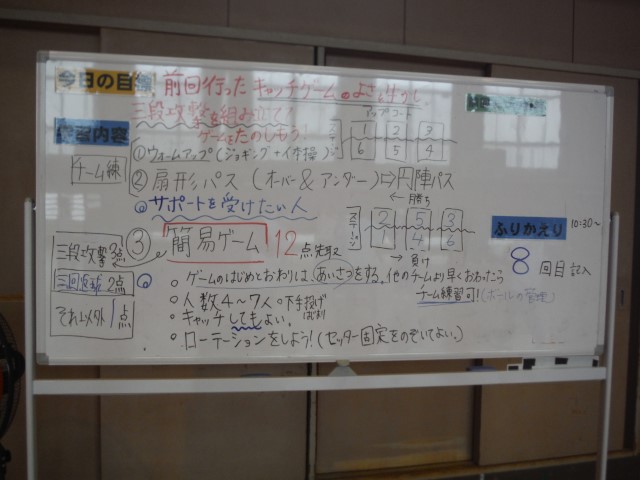 今日の目標 前回行ったキャッチゲームのよさを生かし、
三段攻撃を組み立てて
ゲームをたのしもう!
学習内容
チーム練
①ウォームアップ(ジョギング+体操)
アップコート
1 2 3
6 5 4
②扇形パス(オーバー&アンダー)⇨円陣パス
◎サポートを受けたい人
← 勝ち
2 5 3
1 4 6
← 負け
ふりかえり 10:30~
8回目記入
③簡易ゲーム 12点先取
三段攻撃 3点
三回返球 2点
それ以外 1点
◎
○ゲームのはじめとおわりは、あいさつをする。他のチームより早くおわったら
チーム練習可!(ボールの管理)
○人数4~7人 ○下手投げ
○キャッチしてもよい。
○ローテーションをしよう!(セッター固定をのぞいてよい。)